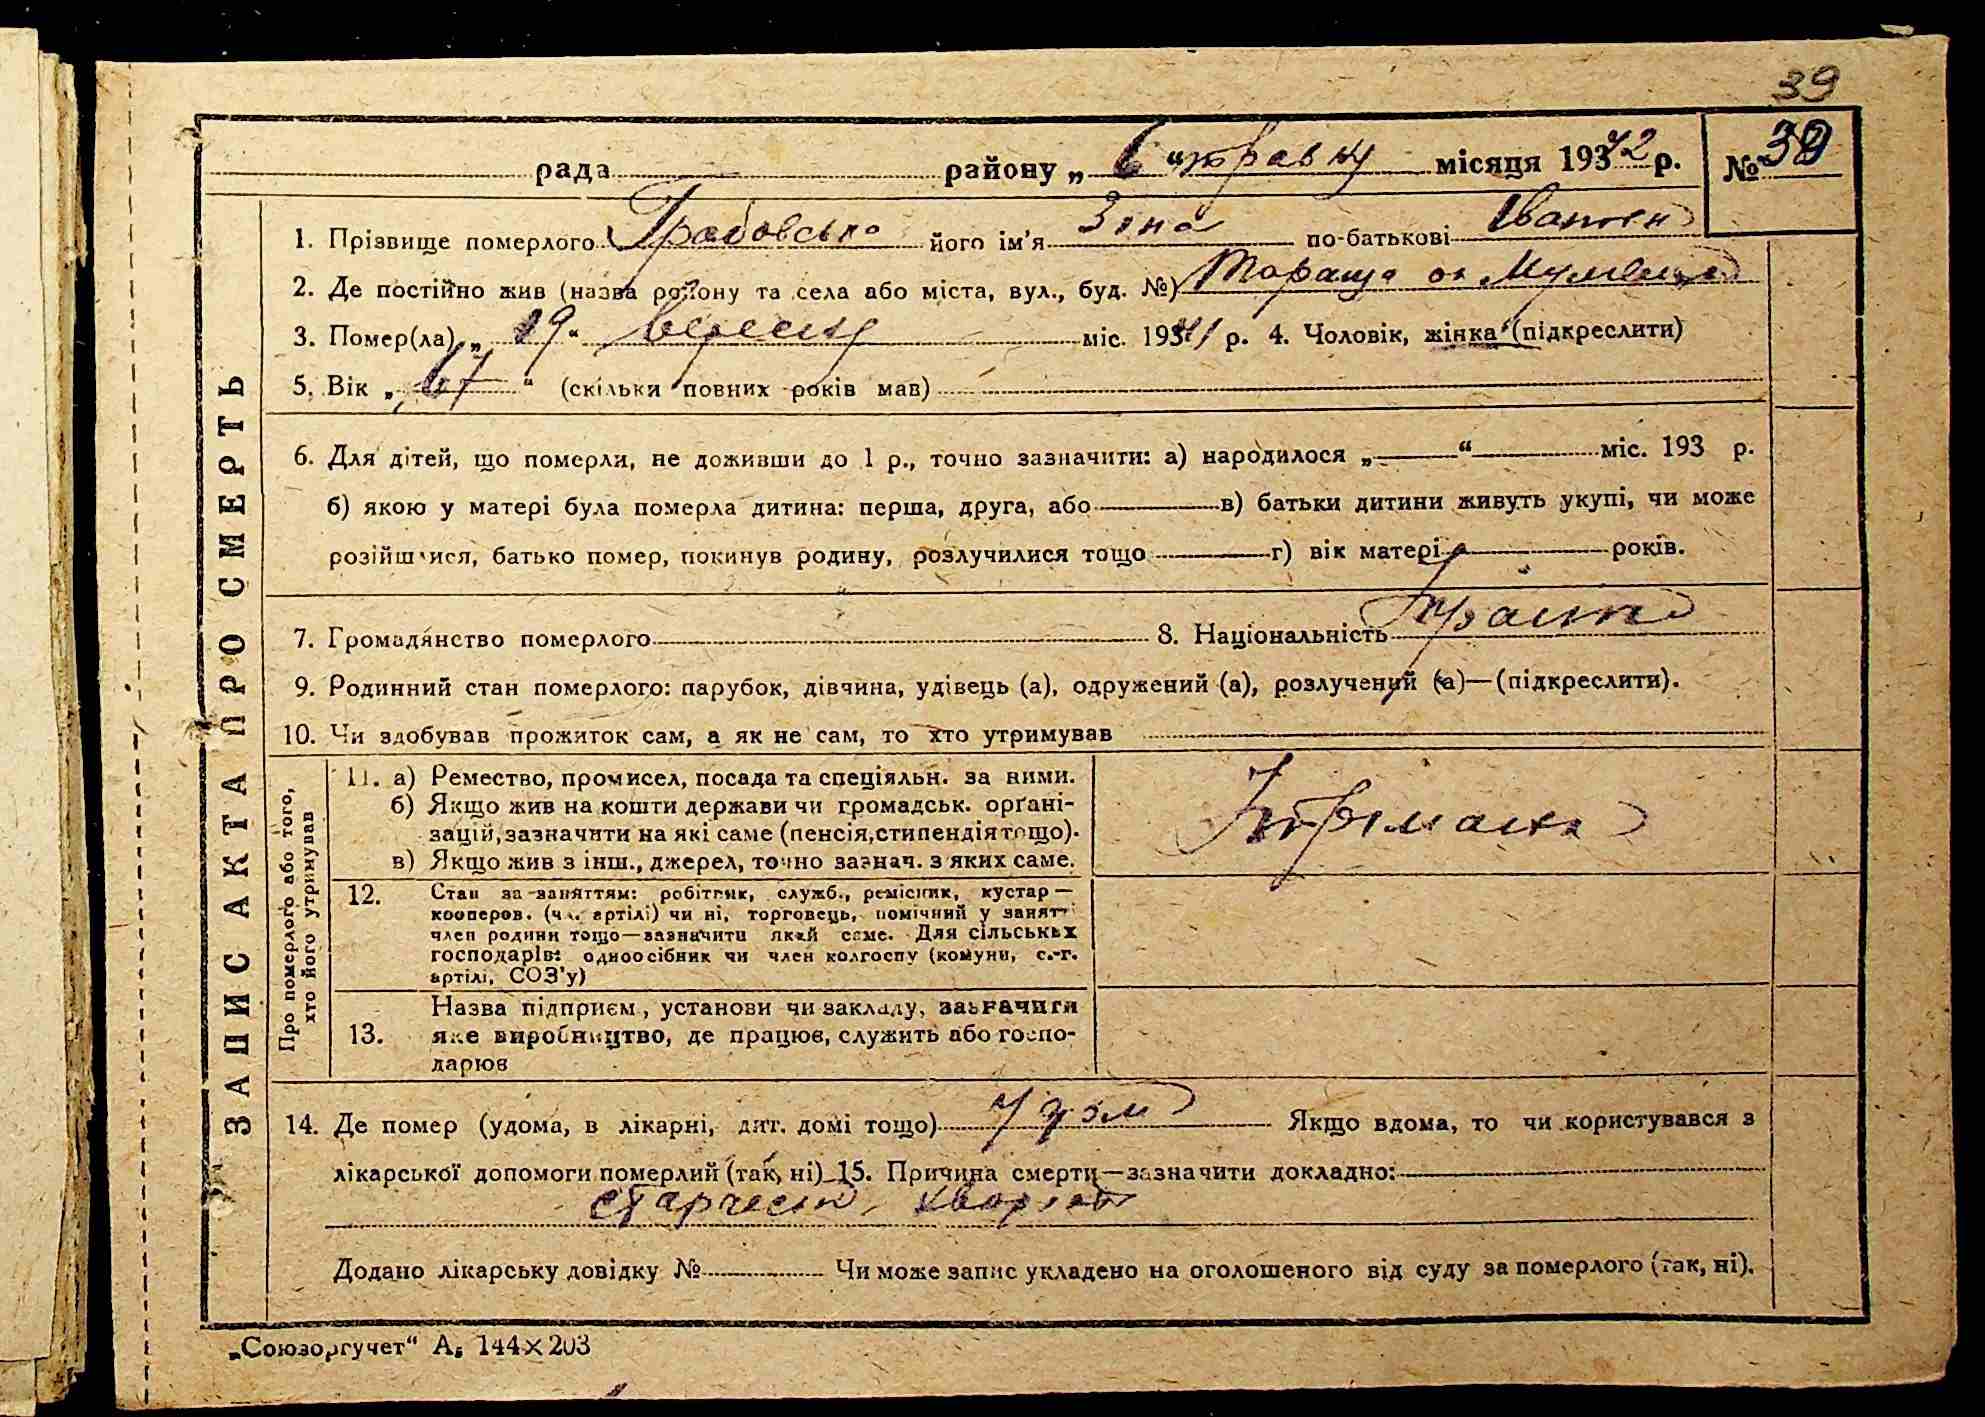 39
рада районy „ 6 “ травня місяця 1942 р. № 39
1. Прізвище померлого Грабовська його ім’я Зіна по-батькові Іванівн
2. Де постійно жив (назва району та села або міста, вул., буд. №) Тараща
3. Помер(ла) „ 19 “ вересня міс. 1941 р. 4. Чоловік, жінка (підкреслити)
5. Вік „ 67 “ (скільки повних років мав)
6. Для дітей, що померли, не доживши до 1 р., точно зазначити: а) народилося „ “ міс. 193 р.
б) якою у матері була померла дитина: перша, друга, або в) батьки дитини живуть укупі, чи може
розійшлися, батько помер, покинув родину, розлучилися тощо г) вік матері років.
7. Громадянство померлого 8. Національність
9. Родинний стан померлого: парубок, дівчина, удівець (а), одружений (а), розлучений (а)—(підкреслити).
10. Чи здобував прожиток сам, а як не сам, то хто утримував
ЗАПИС АКТА ПРО СМЕРТЬ
Про померлого або того,
хто його утримував
11. а) Ремество, промисел, посада та спеціяльн. за ними.
б) Якщо жив на кошти держави чи громадськ. орґані-
зацій, зазначити на які саме (пенсія, стипендія тощо).
в) Якщо жив з інш., джерел, точно зазнач. з яких саме.
12. Стан за заняттям: робітник, служб., ремісник, кустар —
кооперов. (чл. артілі) чи ні, торговець, помічний у занятт
член родини тощо—зазначити який саме. Для сільських
господарів: одноосібник чи член колгоспу (комуни, с.-г.
артілі, СОЗ’у)
13. Назва підприєм., установи чи закладу, зазначити
яке виробництво, де працює, служить або госпо-
дарює
14. Де помер (удома, в лікарні, дит. домі тощо) удом Якщо вдома, то чи користувався з
лікарської допомоги померлий (так, ні) 15. Причина смерти—зазначити докладно:
старческ
Додано лікарську довідку № Чи може запис укладено на оголошеного від суду за померлого (так, ні).
„Союзоргучет“ А₅ 144×203